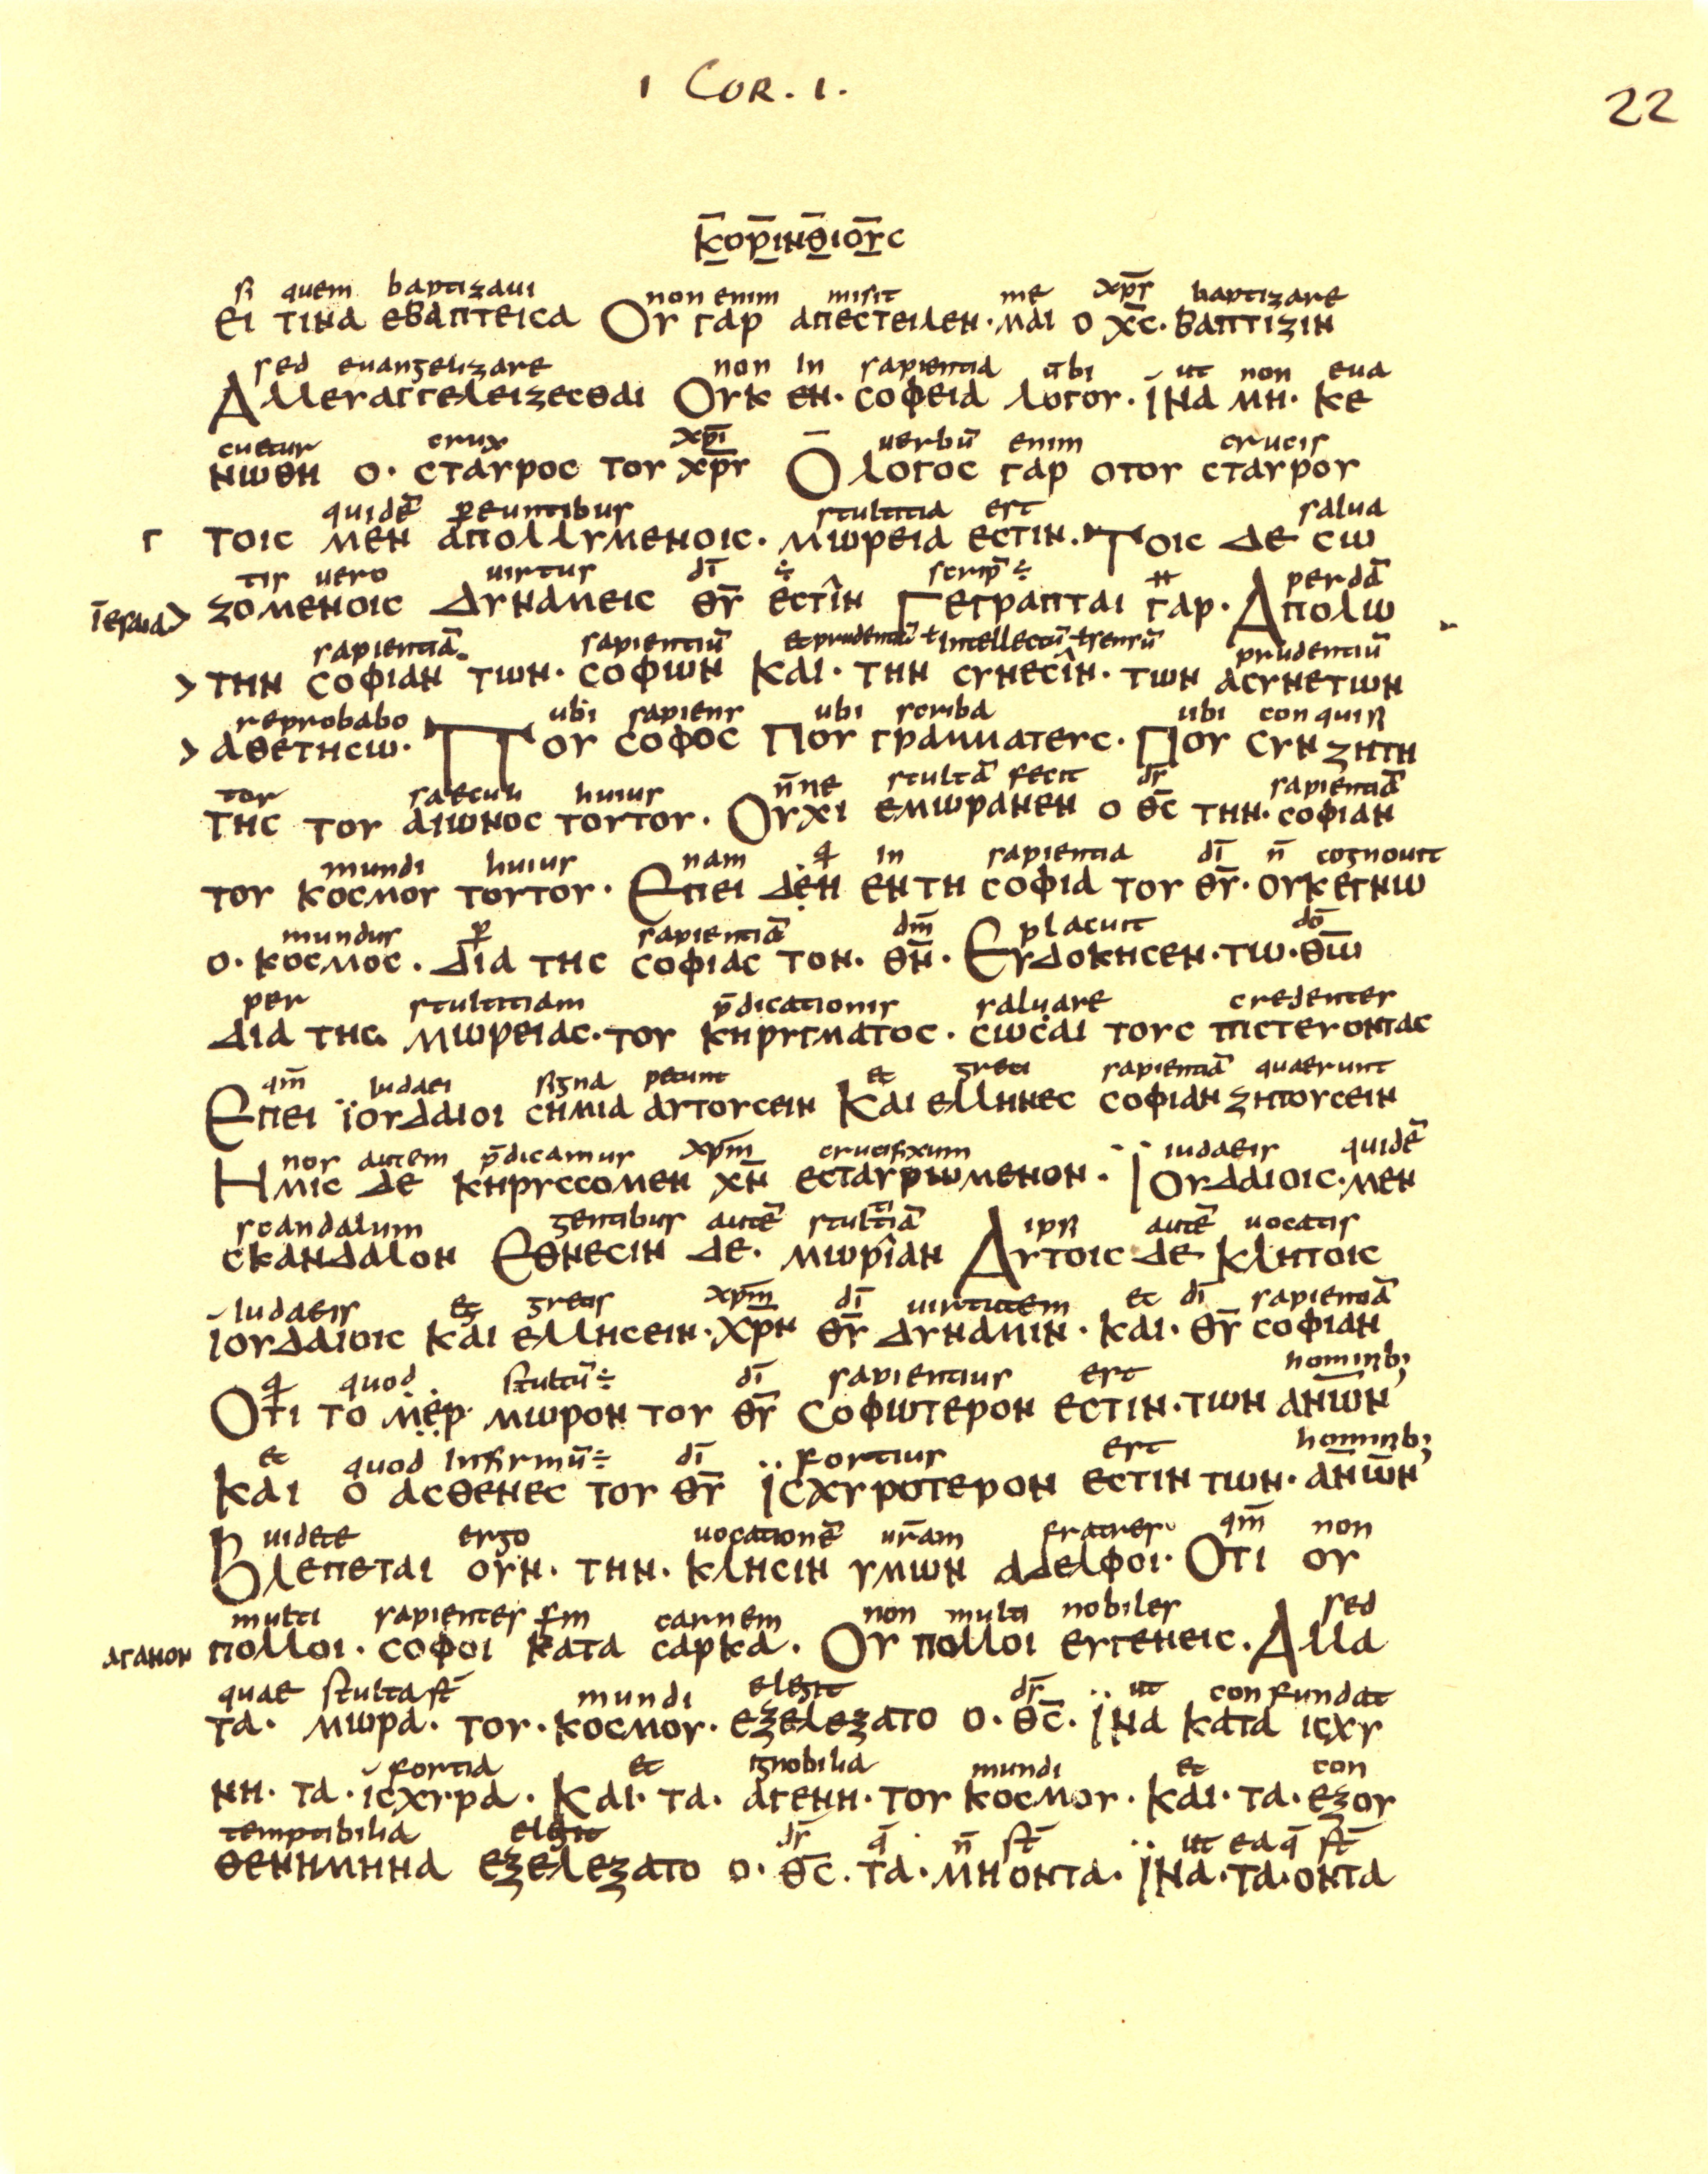 1 COR. 1.
22
ΚΟΡΙΝΘΙΟΥС
si quem baptizaui non enim misit me xp̄s baptizare
ει τινα εβαπτεισα Ου γαρ απεστειλεν · μαι ο χ̄ς · βαπτιζιν
sed euangelizare non in sapientia ūbi ut non eua
Αλλευαγγελειζεσθαι Ουκ εν · σοφεια λογου · ϊνα μη · κε
cuetur crux xp̄i uerbū enim crucis
νωθη ο · σταυρος του χρ̄υ Ο λογος γαρ οτου σταυρου
quidē ꝑeuntibus stultitia est salua
Γ τοις μεν απολλυμενοις · μωρεια εστιν · Τοις δε σω
tis uero uirtus dī ÷ scrip̄ ÷ H perdā
īesaia > ζομενοις δυναμεις θ̄υ εστιν Γεγραπται γαρ · Απολω
sapientiā sapientiū et prudentiā ł intellectū ł sensū prudentiū
> την σοφιαν των · σοφων Και · την συνεσιν · των ασυνετων
reprobabo ubi sapiens ubi scriba ubi conquisi
> αθετησω · Που σοφος Που γραμματευς · Που συνζητη
tor saeculi huius n̄ne stultā fecit d̄s sapientiā
της του αιωνος τουτου · Ουχι εμωρανεν ο θ̄ς την · σοφιαν
mundi huius nam q in sapientia dī n̄ cognouit
του κοσμου τουτου · Επει δεη εν τη σοφια του θ̄υ · ουκ εγνω
mundus ꝑ sapientiā dm̄ placuit dō
ο · κοσμος · δια της σοφιας τον · θ̄ν · Ευδοκησεν · τω · θ̄ω
per stultitiam p̄dicationis saluare credentes
δια της μωρειας · του κηρυγματος · σωσαι τους πιστευοντας
qm̄ iudaei signa petunt et greci sapientiā quaerunt
Επει ϊουδαιοι σημια αυτουσειν Και ελληνες σοφιαν ζητουσειν
nos autem p̄dicamus xpm̄ crucifixum iudaeis quidē
Ημις δε κηρυσσομεν χ̄ν εσταυρωμενον · Ϊουδαιοις · μεν
scandalum gentibus autē stultitiā ipsi autē uocatis
σκανδαλον Εθνεσιν δε · μωριαν Αυτοις δε κλητοις
iudaeis et grecis xpm̄ dī uirtutem et dī sapientiā
ιουδαιοις και ελλησειν · χρ̄ν θ̄υ δυναμιν · και · θ̄υ σοφιαν
q quod stultū ÷ dī sapientius est hominib;
Οτι το μερ · μωρον του θ̄υ Σοφωτερον εστιν · των ανων
et quod infirmū ÷ dī fortius est hominib;
Και ο ασθενες του θ̄υ ϊσχυροτερον εστιν των · ανων
uidete ergo uocationē ur̄am fratres qm̄ non
Βλεπεται ουν · την · κλησιν υμων αδελφοι · Οτι ου
multi sapientes sm carnem non multi nobiles sed
αγανον πολλοι · σοφοι κατα σαρκα · Ου πολλοι ευγενεις · Αλλα
quae stulta st̄ mundi elegit d̄s ut confundat
τα · μωρα · του · κοσμου · εξελεξατο ο · θ̄ς · ϊνα κατα ισχυ
fortia et ignobilia mundi et con
νη · τα · ισχυρα · Και · τα · αγενη · του κοσμου · και · τα · εξου
temptibilia elegit d̄s q̄ n̄ st̄ ut ea q̄ st̄
θενημηνα εξελεξατο ο · θ̄ς · τα · μη οντα · ϊνα · τα · οντα